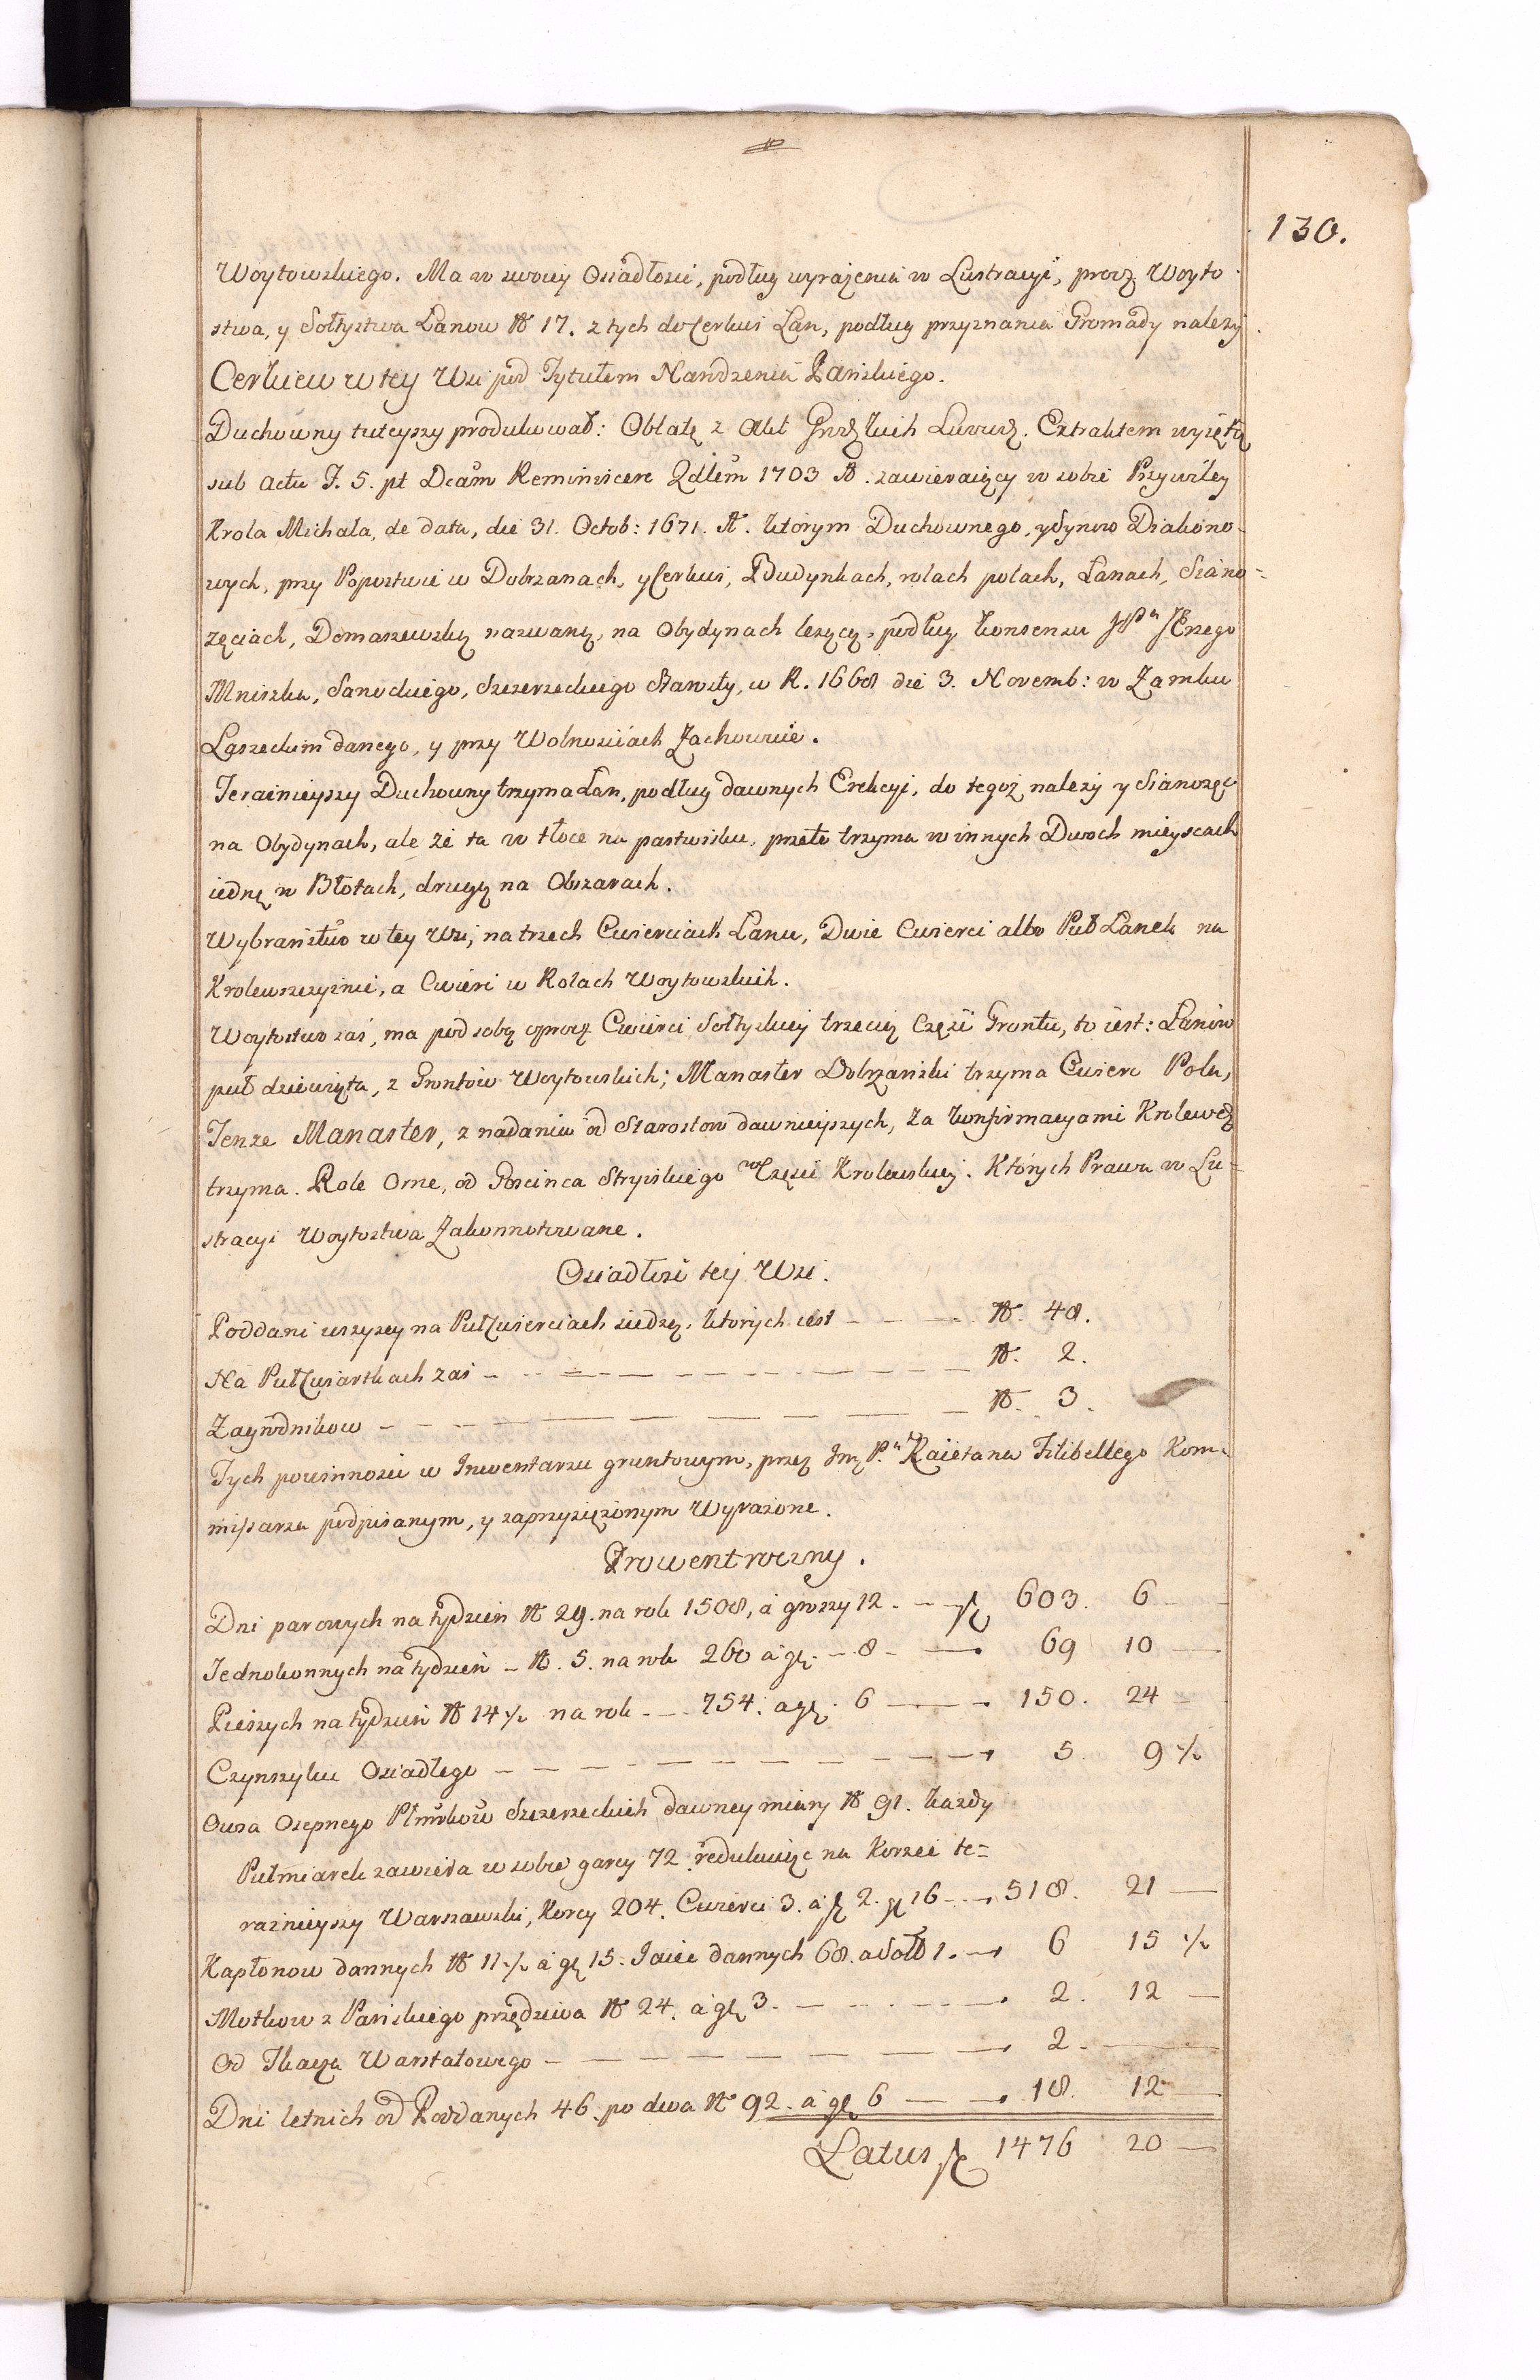 130.
Woytowskiego. Ma w swoiey Osiadłosci, podług wyrażenia w Lustracyi, procz Woyto-
stwa, y Sołtystwa Łanow № 17. z tych do Cerkwi Łan, podług przyznania Gromady należy
Cerkiew w tey Wsi pod Tytułem Narodzenia Pańskiego.
Duchowny tuteyszy produkował: Oblatę z Akt Grodzkich Lwowsk. Extraktem wyiętą
sub Actu F. 5. pt Dcam Reminiscere Qdlem 1703 A. zawieraiący w sobie Przywiley
Krola Michała, de data, die 31. Octob: 1671. A. ktorym Duchownego, y Synow Diakono-
wych, przy Popostwie w Dobrzanach, y Cerkwi, Budynkach, rolach polach, Łanach, Siano-
zęciach, Domaszewską nazwaną, na Obydynach leżącą, podług konsensu JWPn JErzego
Mniszka, Sanockiego, Szczerzeckiego Starosty, w R. 1668 die 3. Novemb: w Zamku
Laszeckim danego, y przy Wolnosciach Zachowuie.
Teraznieyszy Duchowny trzyma Łan, podług dawnych Erekcyi, do tegoż należy y Sianożęć
na Obydynach, ale że ta w tłoce na pastwisku, przeto trzyma w innych Dwoch mieyscach
iednę w Błotach, drugą na Obszarach.
Wybraństwo w tey Wsi, na trzech Cwierciach Łanu, Dwie Cwierci albo Puł Łanek na
Krolewszczyznie, a Cwierć w Rolach Woytowskich.
Woytostwo zaś, ma pod sobą oprocz Cwierci Sołtyskiey trzecią Część Gruntu, to iest: Łanow
puł dziewięta, z Gruntow Woytowskich; Manaster Dobrzański trzyma Cwierć Pola,
Tenże Manaster, z nadania od Starostow dawnieyszych, za konfirmacyami Krolewsk
trzyma. Role Orne, od Goscinca Stryiskiego w Częsci Krolewskiey. Ktorych Prawa w Lu-
stracyi Woytostwa Zakonnotowane.
Osiadłość tey Wsi.
Poddani wszyscy na Puł Cwierciach siedzą, ktorych iest — — — № 48.
Na Puł Cwiartkach zaś — — — № 2.
Zagrodnikow — — — № 3.
Tych powinnosci w Inwentarzu gruntowym, przez Jmć Pn Kaietana Filibellego Kom-
missarza podpisanym, y zaprzysiężonym Wyrażone.
Prowent roczny.
Dni parowych na tydzień № 29. na rok 1508, á groszy 12. — — zł 603. 6 —
Jednokonnych na tydzień — № 5. na rok 260 á gł. — 8 — — 69 10 —
Pieszych na tydzień № 14½ na rok — — 754. á gł. 6 — — 150. 24 —
Czynszyku Osiadłego — — — 5. 9½
Owsa Osepnego Płmiarkow Szczerzeckich dawney miary № 91. każdy
Pułmiarek zawiera w sobie garcy 72. redukuiąc na Korzec te-
raznieyszy Warszawski, Korcy 204. Cwierci 3. á zł 2. gł 16 — 518. 21 —
Kapłonow dannych № 11½ á gł 15. Jaiec dannych 68. a Sold 1. — 6 15 ½
Motkow z Pańskiego przędziwa № 24. á gł 3. — — — 2. 12 —
Od Tkacza Warstatowego — — — 2. —
Dni letnich od Poddanych 46. po dwa № 92. á gł 6 — — 18. 12 —
Latus zł 1476 20 —